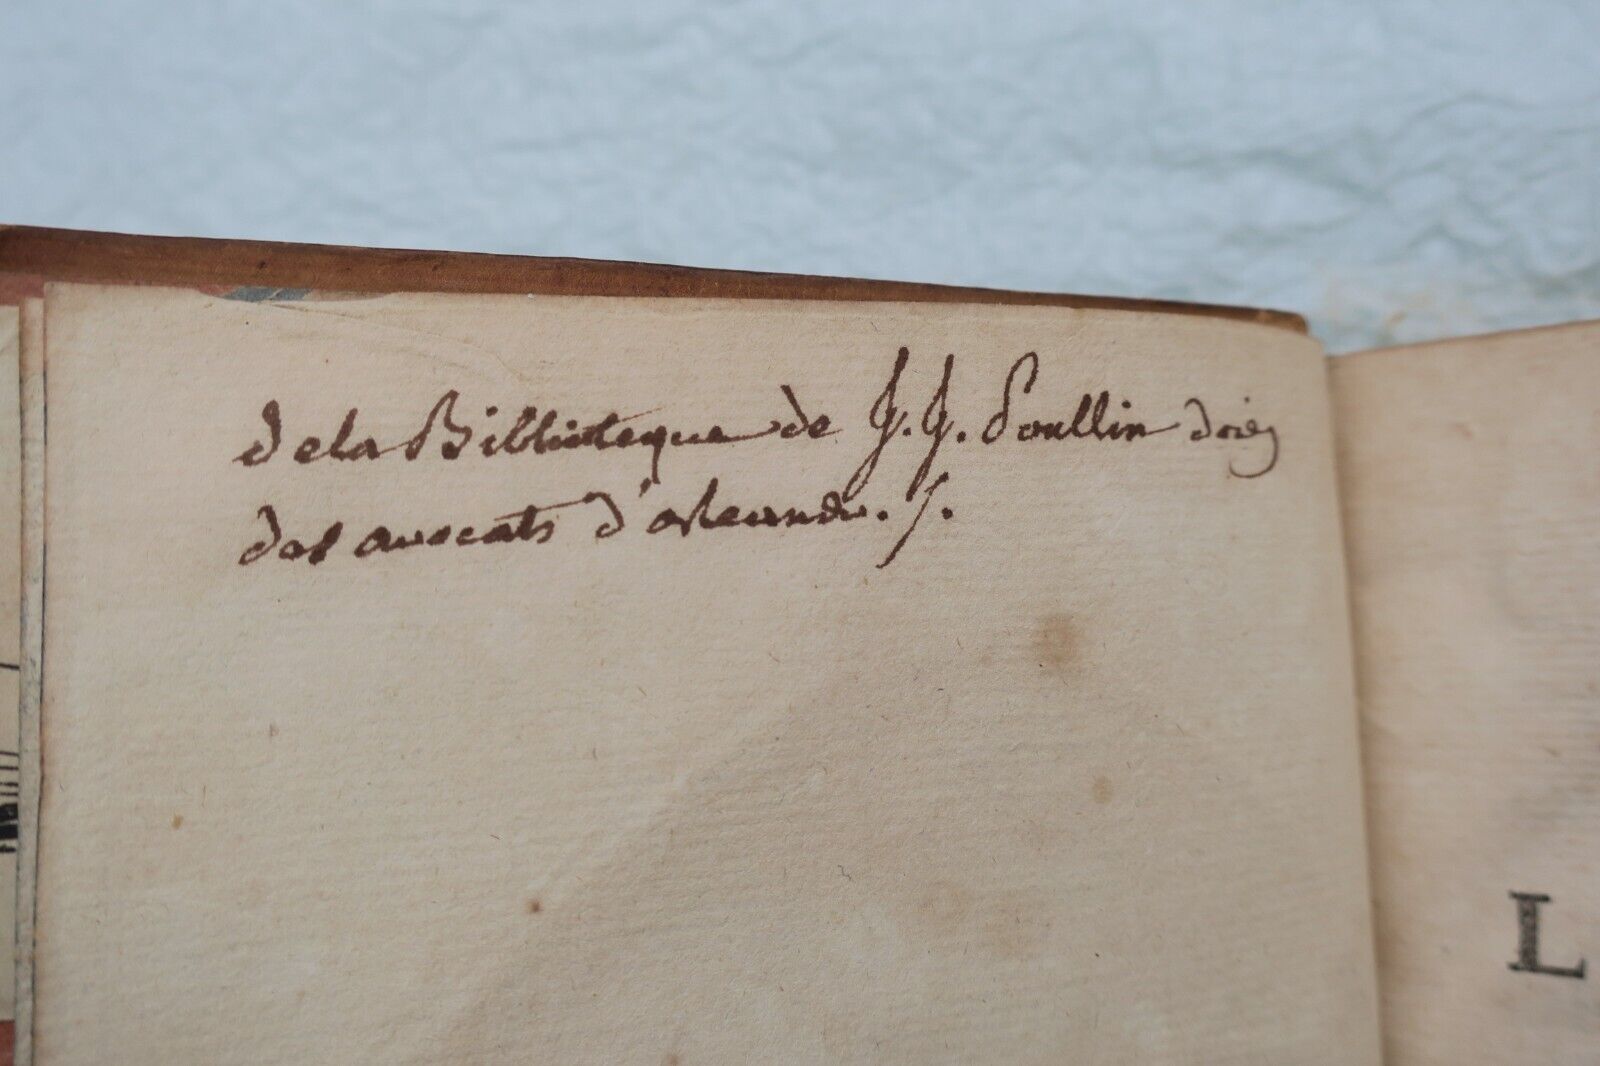 dela Biblioteque de J. J. Poullin doie͂
des avocats d'orleans. /.
L